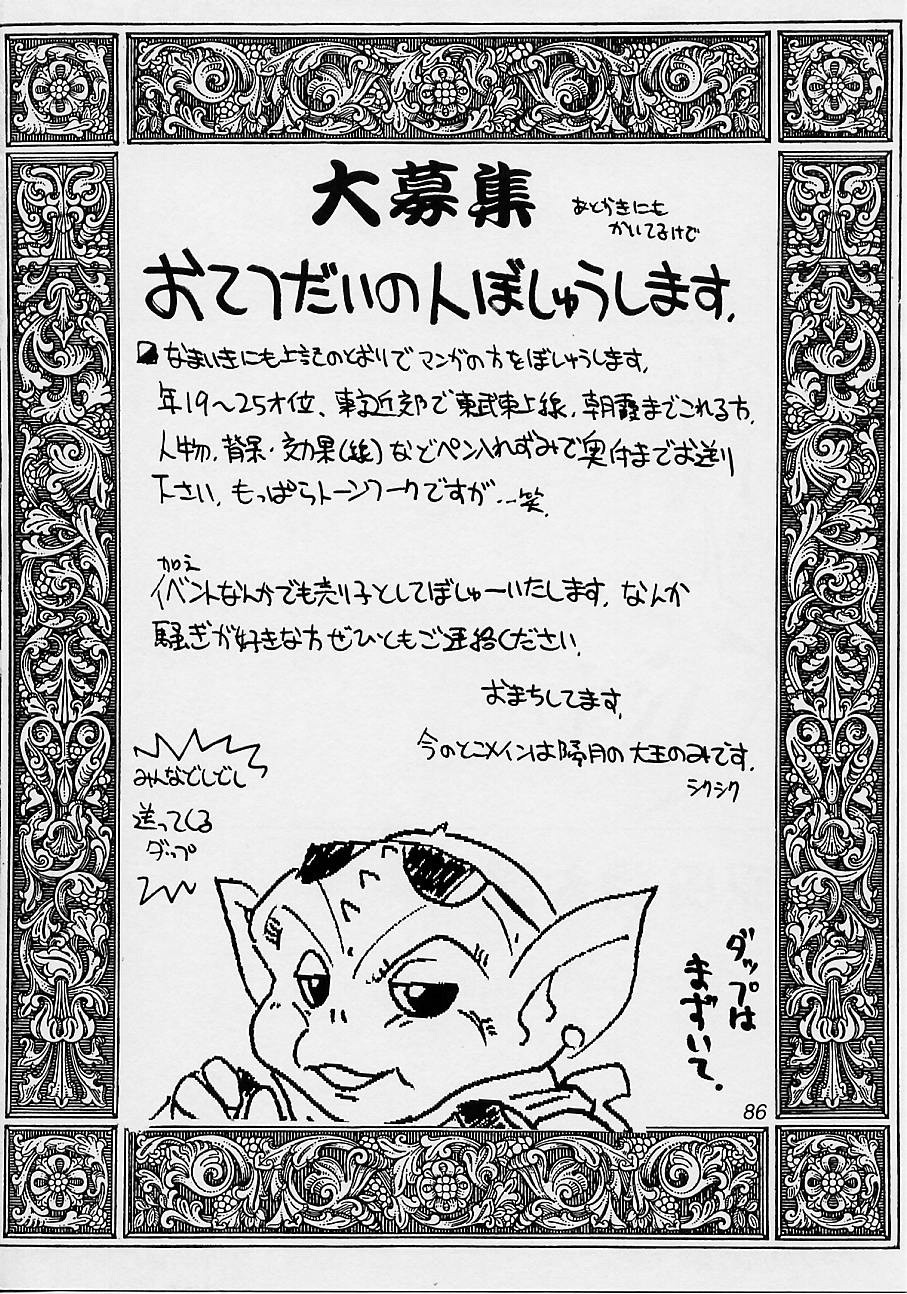 大募集
あとがきにも
かいてるけど
おてつだいの人ぼしゅうします.
なまいきにも上記のとおりでマンガの方をぼしゅうします.
年19～25才位、東京近郊で東武東上線.朝霞までこれる方.
人物.背景・効果(線)などペン入れずみで奥付までお送り
下さい.もっぱらトーンワークですが…笑.
加え
イベントなんかでも売り子としてぼしゅーいたします.なんか
騒ぎが好きな方ぜひともご連絡ください.
おまちしてます.
今のとこメインは隔月の大王のみです.
シクシク
みんなどしどし
送ってくる
ダップ
ダップは
まずいて.
86